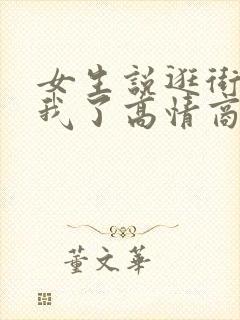 女生说逛街
我了高情商
董文华